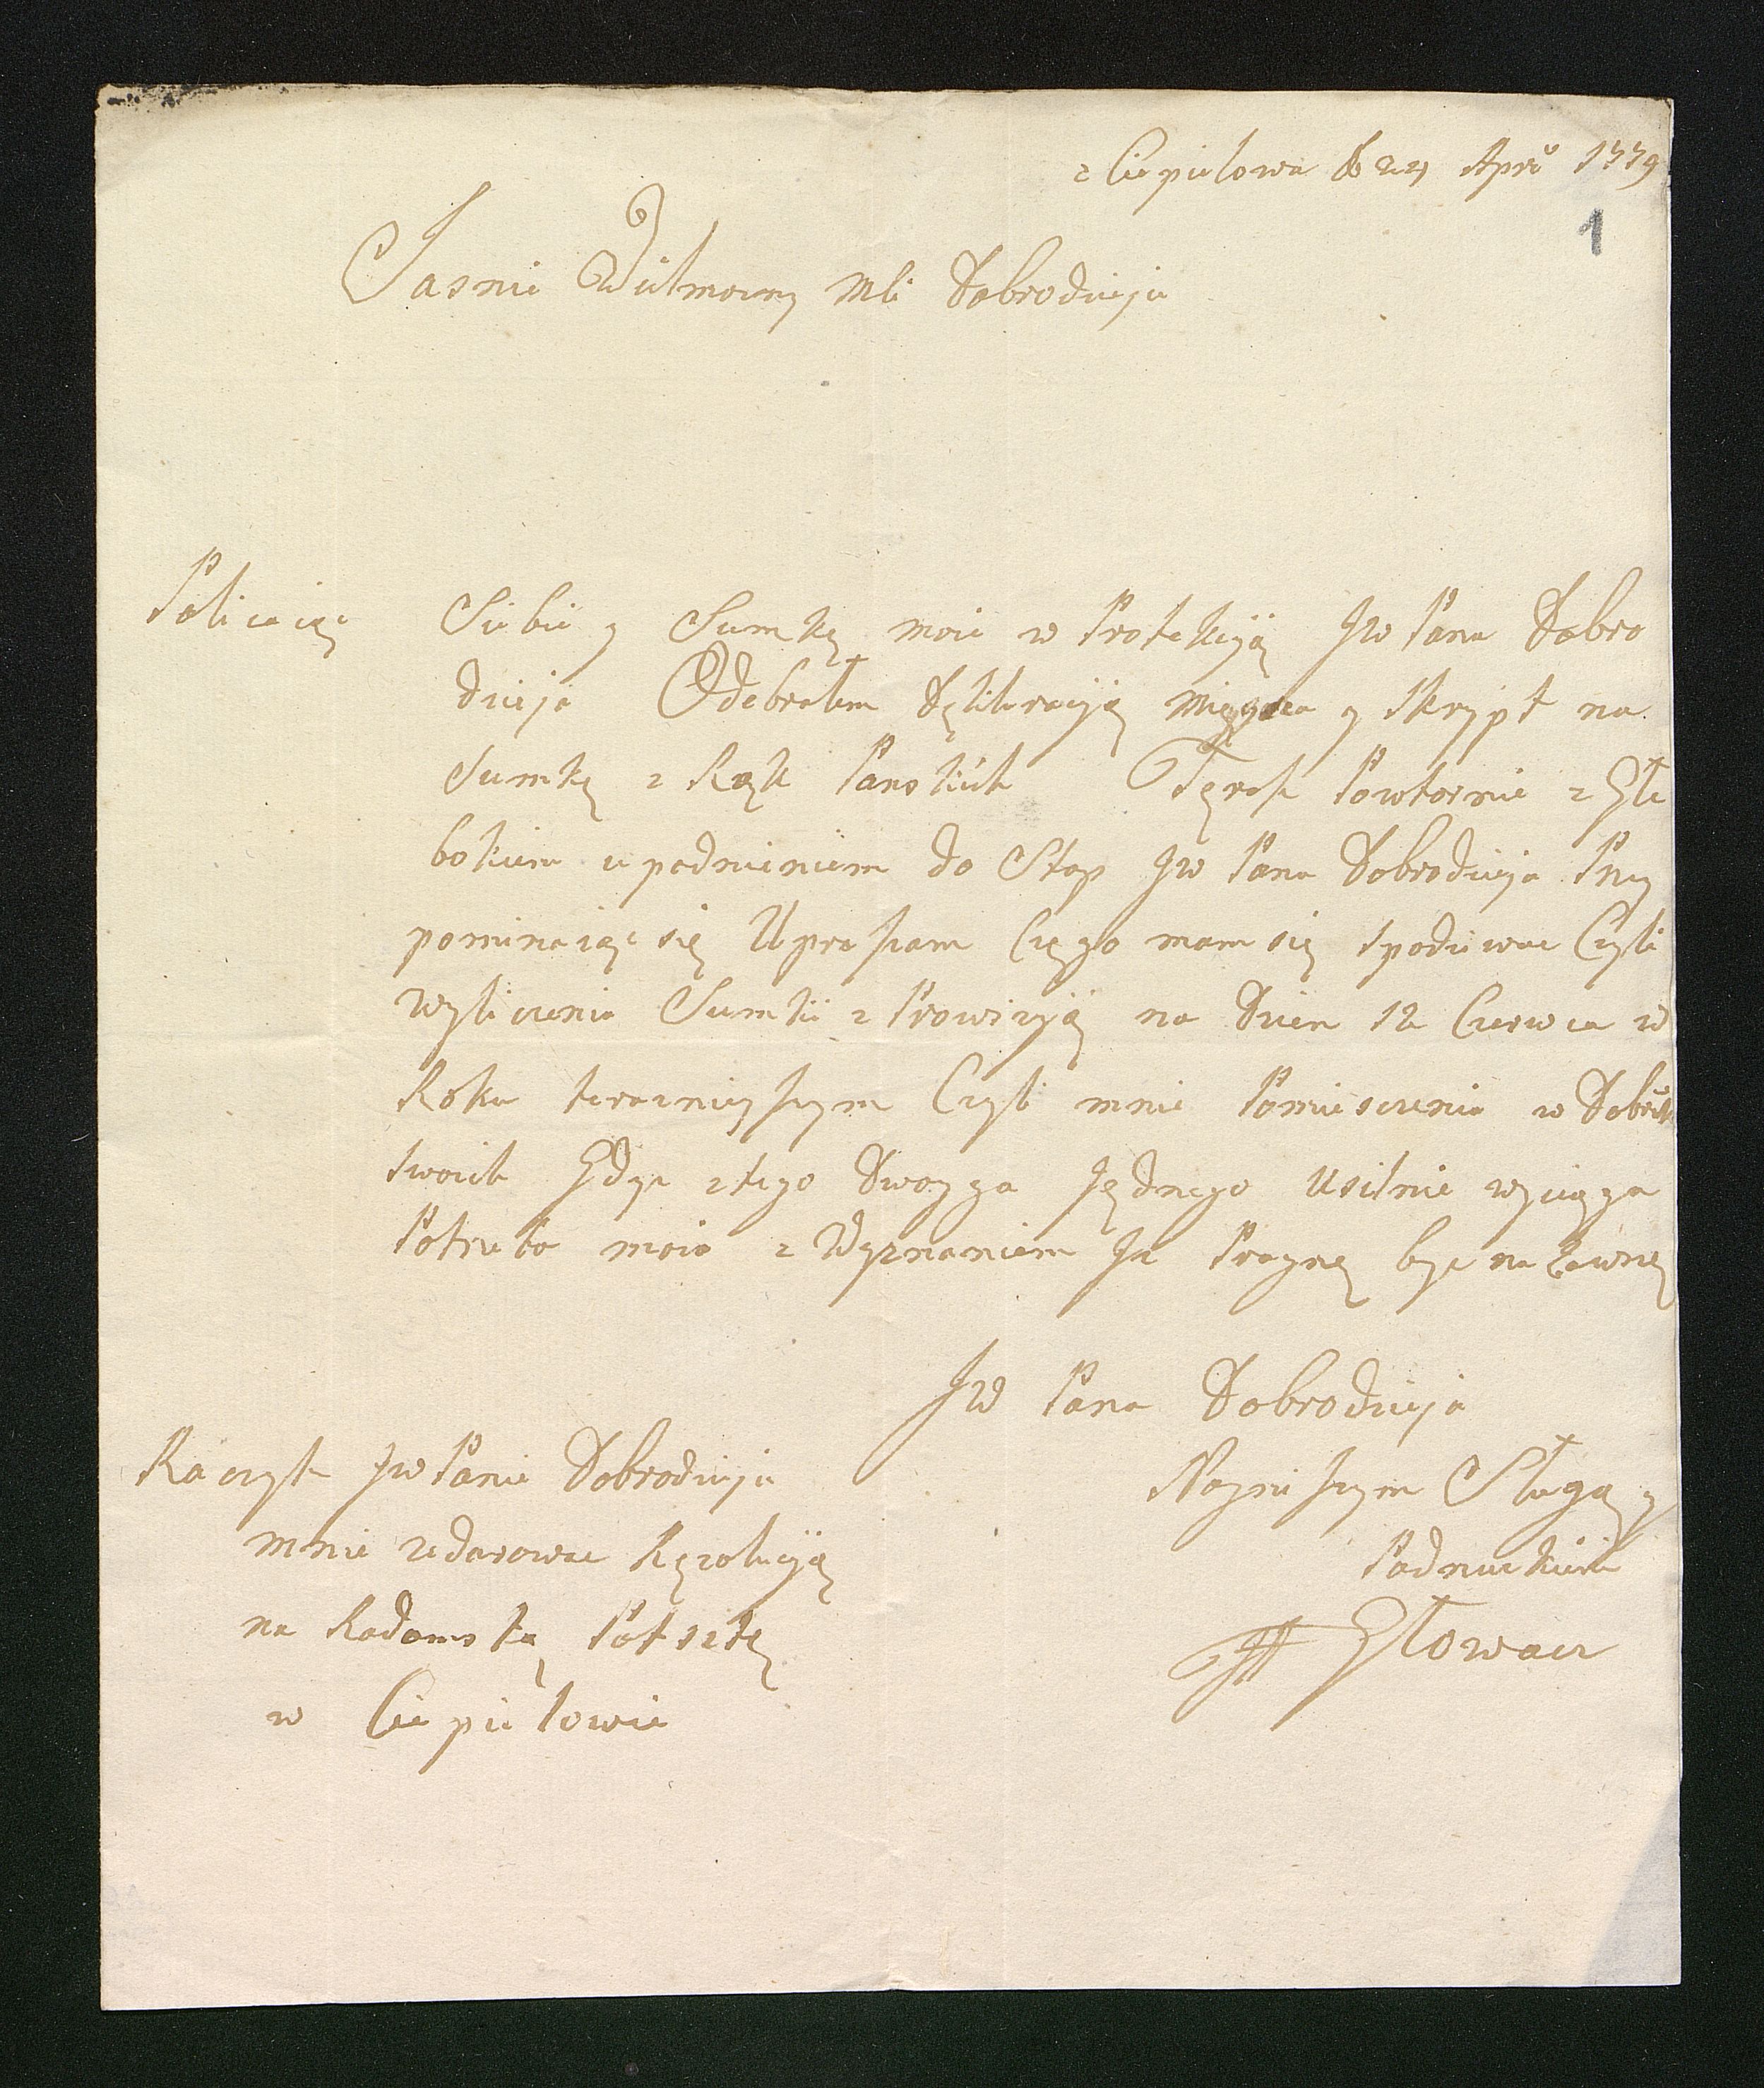 z Ciepielowa d 24 Apr 1779
1
Jasnie Wielmozny Mci Dobrodzieju
Policaiąc Siebie y Sumkę moie w Protekcyią JW Pana Dobro
dzieja Odebrałem y Skrypt na
Sumkę z Rąk Panskich Teraz Powtornie z Głę
bokiem upadnieniem do Stop JW Pana Dobrodzieja Przy
pominaiąc się Upraszam Czego mam się spodziewac Czyli
wyliczenia Sumki z Prowizyią na Dzien 12 Czerwca w
Roku teraznieyszym Czyli mnie Pomiesczenia w Dobrach
swoich Gdyz z tego Dwoyga Jednego usilnie wyciąga
Potrzeba moia z Wyznaniem ze Pragnę byc na zawszę
JW Pana Dobrodzieja
Nayniszym Sługą y
Podnuszkiem
Głowacz
Raczysz JW Panie Dobrodzieju
mnie zedarowac Rezolucyią
na Radomską Potsztę
w Ciepielowie